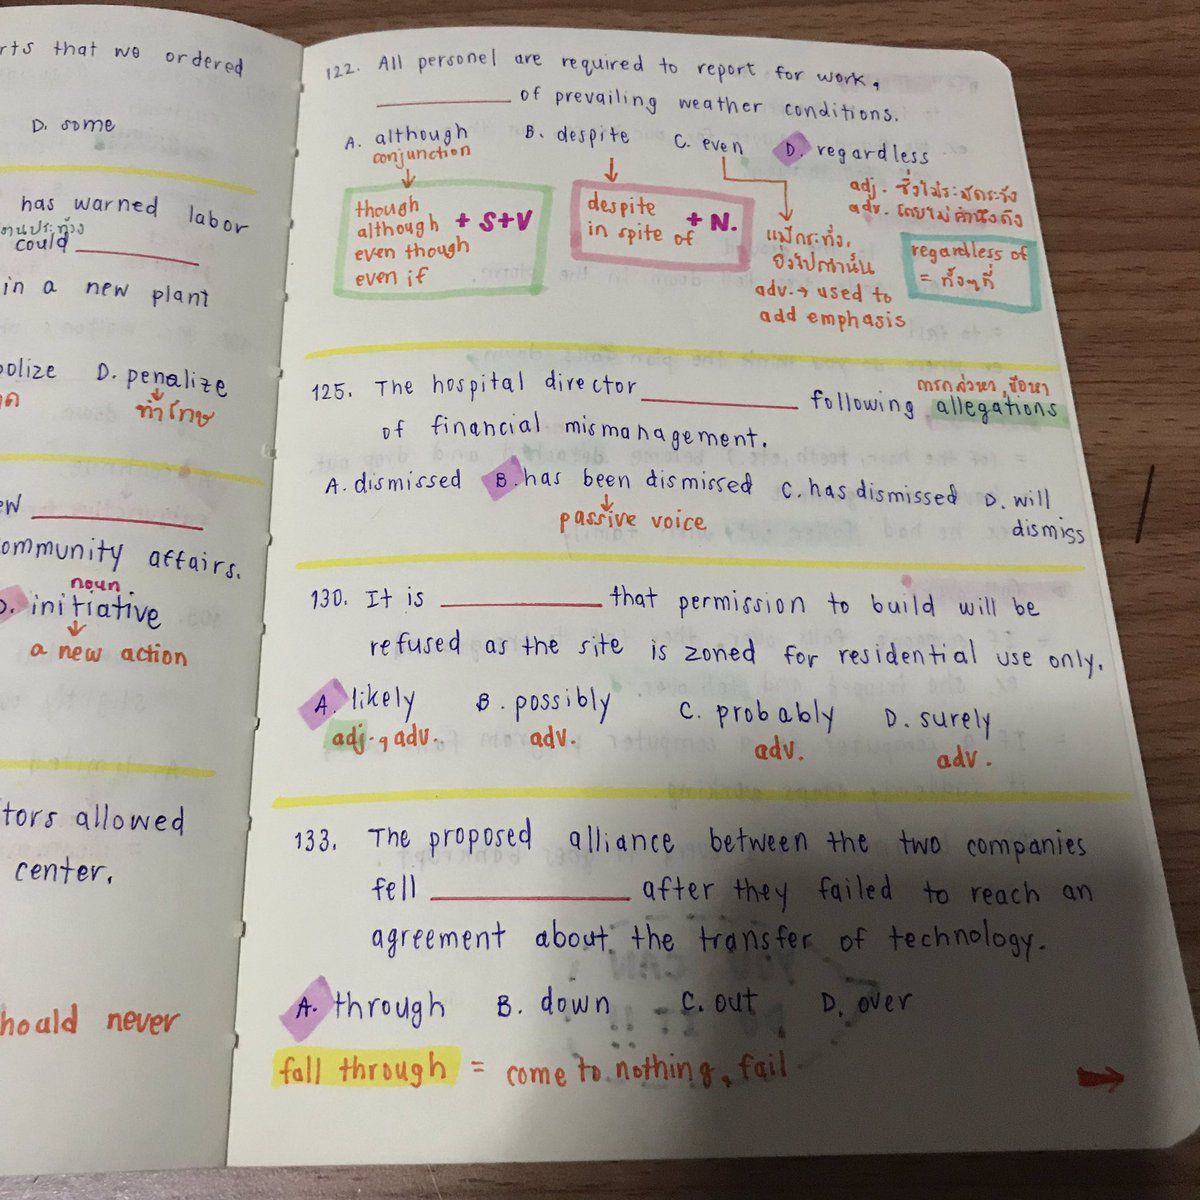 rts that we ordered
D. some
has warned labor
could
in a new plant
olize D. penalize
ทำโทษ
ew
ommunity affairs.
noun
D. initiative
a new action
tors allowed
center.
hoald never
122. All personel are required to report for work,
of prevailing weather conditions.
A. although B. despite C. even D. regardless
conjunction
though
although + S+V
even though
even if
despite
in spite of + N.
แม้กระทั่ง,
ยิ่งไปกว่านั้น
adv. → used to
add emphasis
adj. ซึ่งไม่ระมัดระวัง
adv. โดยไม่คำนึงถึง
regardless of
= ทั้งๆที่
125. The hospital director following allegations
การกล่าวหา, ข้อหา
of financial mismanagement.
A. dismissed B. has been dismissed C. has dismissed D. will
dismiss
passive voice
130. It is that permission to build will be
refused as the site is zoned for residential use only.
A. likely B. possibly C. probably D. surely
adj., adv. adv. adv. adv.
133. The proposed alliance between the two companies
fell after they failed to reach an
agreement about the transfer of technology.
A. through B. down C. out D. over
fall through = come to nothing, fail